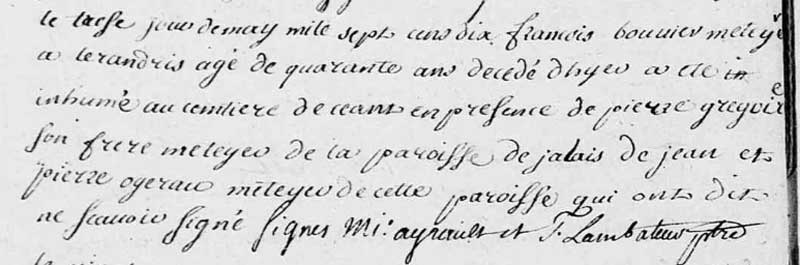 le trese jour de may mile sept cens dix francois bouvier meteyer
a lerandris agé de quarante ans decedé dhyer a ete in
inhumé au cemtiere de ceans en presence de pierre gregoire
son frere meteyer de la paroisse de jalais de jean et
pierre ogerau meteyer de cette paroisse qui ont dit
ne scavoir signé signes Mi. ayrault et F. Lambateur ptre